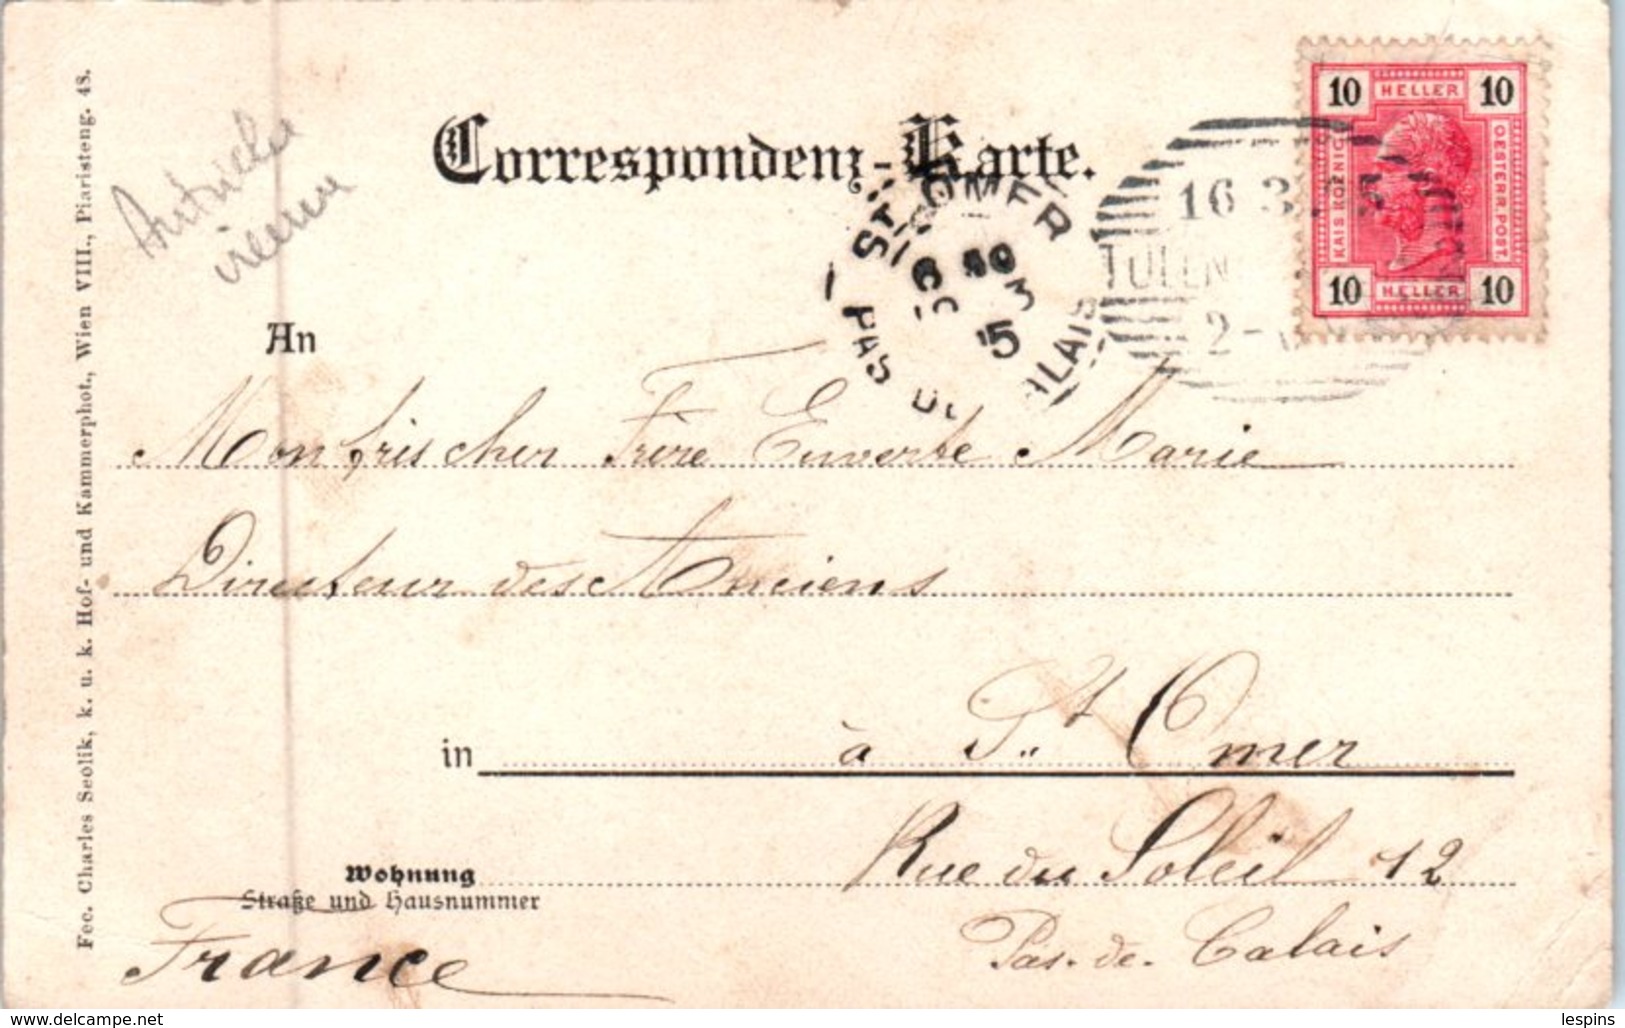 Correspondenz-Karte.
10 HELLER 10
KAIS. KOENIGL.
OESTERR. POST.
10 HELLER 10
16 3
TULLN
2-
ST OMER
3
5
PAS DE CALAIS
An
Mon très cher Frère Euverte Marie
Directeur des Anciens
in à St Omer
Wohnung Rue du Soleil 12
Straße und Hausnummer
Pas-de-Calais
France
Fec. Charles Seolik, k. u. k. Hof- und Kammerphot., Wien VIII., Piaristeng. 48.
www.delcampe.net
lespins